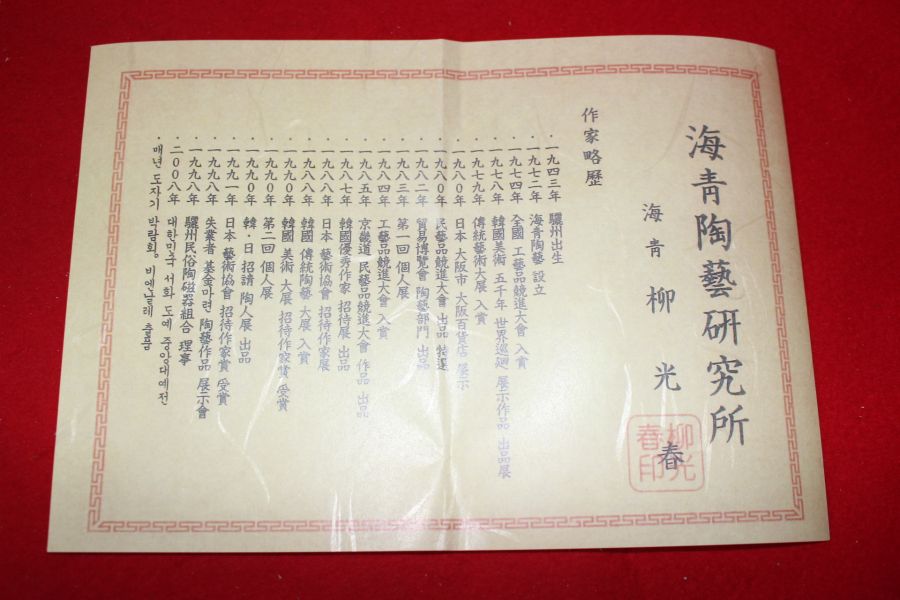 海青陶藝硏究所
海青 柳光春
柳光春印
作家略歷
· 一九四三年 驪州出生
· 一九七二年 海青陶藝 設立
· 一九七四年 全國 工藝品競進大會 入賞
· 一九七八年 韓國美術 五千年 世界巡廻 展示作品 出品展
· 一九七九年 傳統藝術大展 入賞
· 一九八〇年 日本 大阪市 大阪百貨店 展示
· 一九八〇年 民藝品競進大會 出品 特選
· 一九八二年 貿易博覽會 陶藝部門 出品
· 一九八三年 第一回 個人展
· 一九八四年 工藝品競進大會 入賞
· 一九八五年 京畿道 民藝品競進大會 作品 出品
· 一九八七年 韓國優秀作家 招待展 出品
· 一九八八年 日本 藝術協會 招待作家展
· 一九八八年 韓國 傳統陶藝 大展 入賞
· 一九九〇年 韓國 美術 大展 招待作家賞 受賞
· 一九九〇年 第二回 個人展
· 一九九〇年 韓·日 招請 陶人展 出品
· 一九九一年 日本 藝術協會 招待作家賞 受賞
· 一九九八年 失業者 基金마련 陶藝作品 展示會
· 一九九八年 驪州民俗陶磁器組合 理事
· 二〇〇八年 대한민국 서화 도예 중앙대예전
· 매년 도자기 박람회, 비엔날레 출품